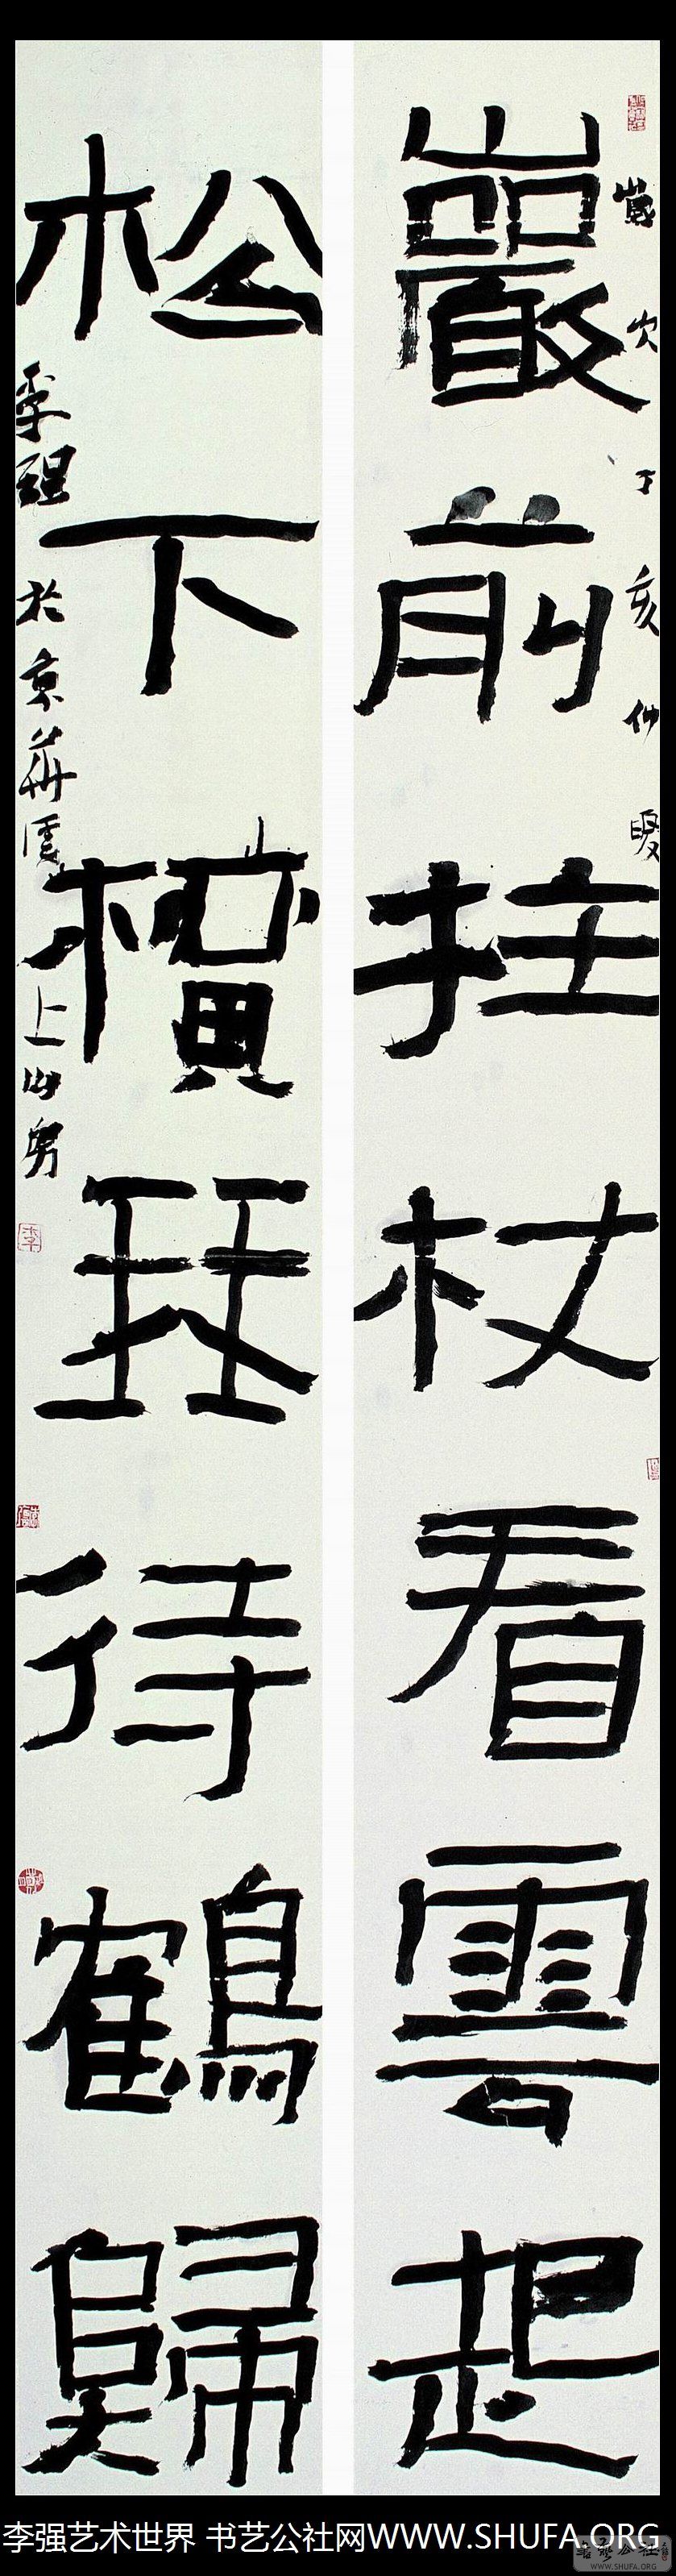 歲次丁亥仲夏
巖前拄杖看雲起
松下橫琴待鶴歸
李强於京華
上山男
李强艺术世界 书艺公社网WWW.SHUFA.ORG
书艺公社
WWW.SHUFA.ORG